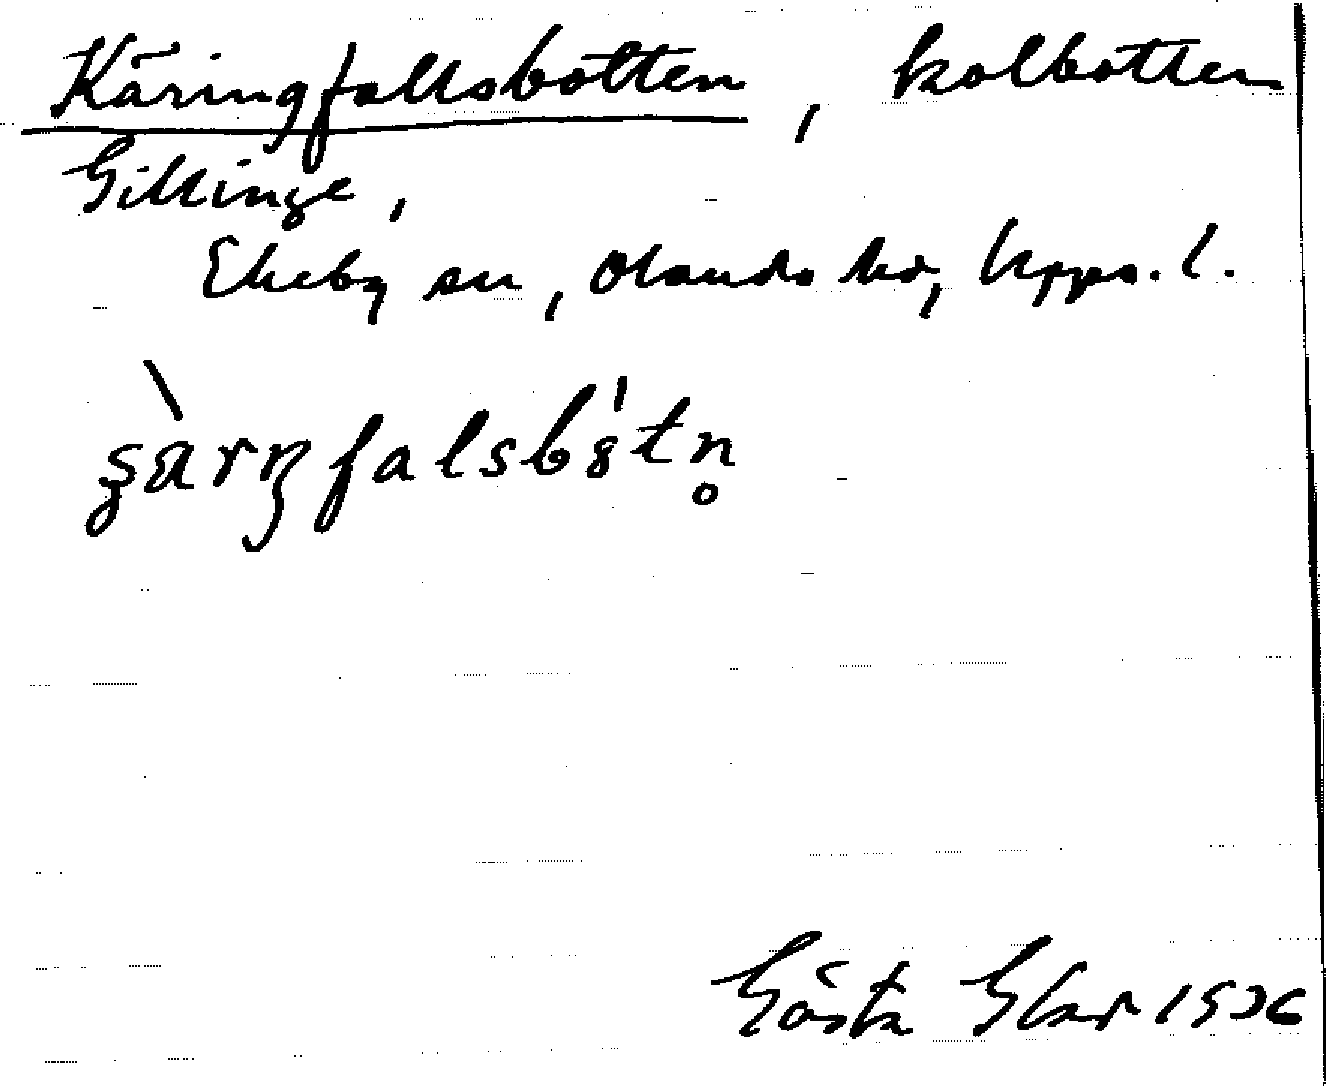 Käringfallsbotten, kolbotten
Gillinge,
Ekeby sn, Olands hd, Upps. l.
Gösta Eklar 1936